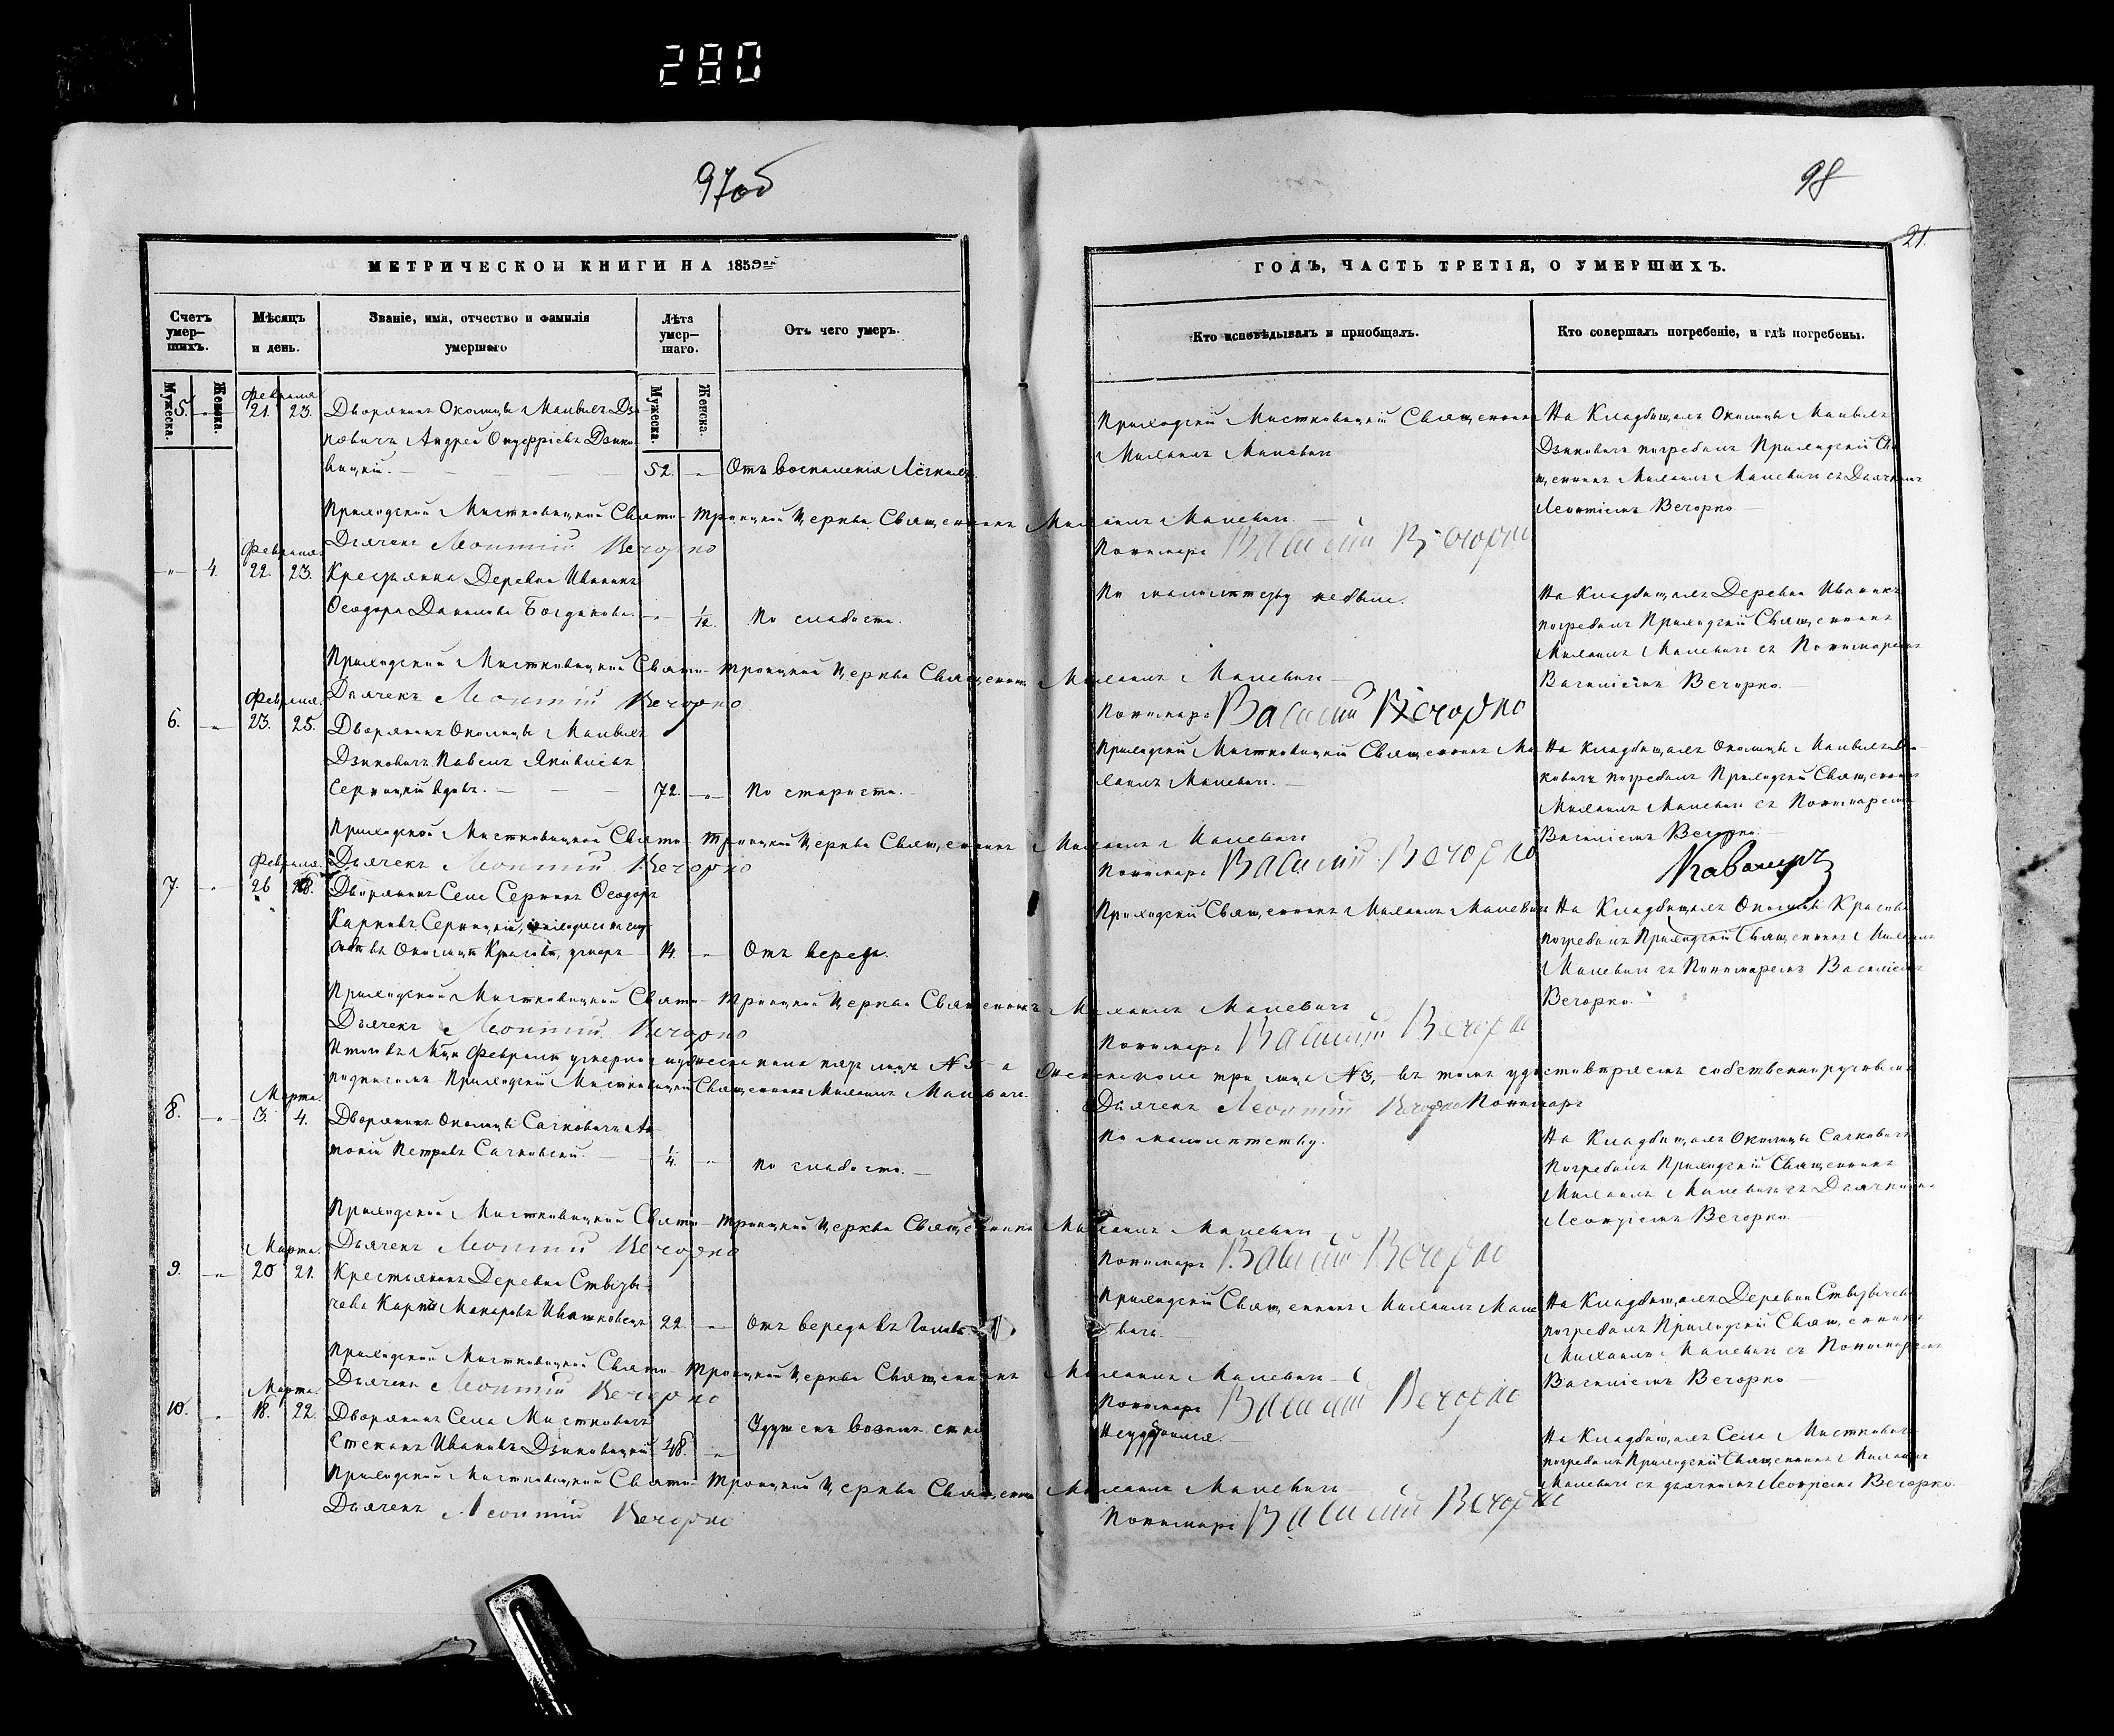 280
97об
98
21
МЕТРИЧЕСКОЙ КНИГИ НА 1859ый
ГОДЪ, ЧАСТЬ ТРЕТІЯ, О УМЕРШИХЪ.
Счетъ умер-шихъ.
Мѣсяцъ и день.
Званіе, имя, отчество и фамилія умершаго
Лѣта умер-шаго.
Отъ чего умеръ.
Кто исповѣдывалъ и пріобщалъ.
Кто совершалъ погребеніе, и гдѣ погребены.
Мужеска. Женска.
Мужеска. Женска.
Февраля
5. " 21. 23. Дворянинъ Околицы Манвилъ Дзи-
ковичъ Андрей Онуфріевъ Дзико-
вицкій. 52. " Отъ воспаленія Лёгкихъ.
Приходскій Мистковицкій Священникъ
Михаилъ Малевичъ
На Кладбищахъ Околицы Манвилъ
Дзиковичъ погребалъ Приходскій Свя-
щенникъ Михаилъ Малевичъ съ Дьячкомъ
Леонтіемъ Вечорко
Приходской Мистковицкой Свято-Троицкой Церкви Священникъ Михаилъ Малевичъ
Дьячекъ Леонтій Вечорко
Пономарь Василій Вечорко
Февраля
" 4. 22. 23. Крестьянка Деревни Иваникъ
Ѳеодора Данилова Богданова " 1/12. По слабости.
По малолѣтству небыла.
На Кладбищахъ Деревни Иваникъ
погребалъ Приходскій Священникъ
Михаилъ Малевичъ съ Пономаремъ
Василіемъ Вечорко.
Приходской Мистковицкой Свято-Троицкой Церкви Священникъ Михаилъ Малевичъ
Дьячекъ Леонтій Вечорко
Пономарь Василій Вечорко
Февраля
6. " 23. 25. Дворянинъ Околицы Манвилъ
Дзиковичъ Павелъ
Серницкій вдовъ. 72. " По старости.
Приходскій Мистковицкій Священникъ Ми-
хаилъ Малевичъ.
На Кладбищахъ Околицы Манвилъ Дзи-
ковичъ погребалъ Приходскій Священникъ
Михаилъ Малевичъ съ Пономаремъ
Василіемъ Вечорко
Приходской Мистковицкой Свято-Троицкой Церкви Священникъ Михаилъ Малевичъ
Дьячекъ Леонтій Вечорко
Пономарь Василій Вечорко
Февраля
7. " 26 28. Дворянинъ Села Серникъ Ѳеодоръ
Карповъ Серницкій,
Околицѣ Красовѣ, умеръ 14. " Отъ вереда.
Приходскій Священникъ Михаилъ Малевичъ
На Кладбищахъ Околицы Красова
погребалъ Приходскій Священникъ Михаилъ
Малевичъ съ Пономаремъ Василіемъ
Вечорко.
Приходской Мистковицкой Свято-Троицкой Церкви Священникъ Михаилъ Малевичъ
Дьячекъ Леонтій Вечорко
Пономарь Василій Вечорко
Итого въ М-цѣ Февралѣ умерло мужеска пола пять лицъ №5 а женска пола три лица №3, въ томъ удостовѣряемъ собственноручнымъ
подписомъ Приходскій Мистковицкій Священникъ Михаилъ Малевичъ.
Дьячекъ Леонтій Вечорко Пономарь
Марта
8. " 3. 4. Дворянинъ Околицы Сачковичъ Ан-
тоній Петровъ Сачковскій. 1/4. " По слабости.
По малолѣтству.
На Кладбищахъ Околицы Сачковичъ
Погребалъ Приходскій Священникъ
Михаилъ Малевичъ съ Дьячкомъ
Леонтіемъ Вечорко
Приходской Мистковицкой Свято-Троицкой Церкви Священникъ Михаилъ Малевичъ
Дьячекъ Леонтій Вечорко
Пономарь Василій Вечорко
Марта
9. " 20 21. Крестьянинъ Деревни Ствзы-
чева Карпъ Макаровъ 22. " Отъ вереда въ Головѣ.
Приходскій Священникъ Михаилъ Мале-
вичъ.
На Кладбищахъ Деревни
погребалъ Приходскій Священникъ
Михаилъ Малевичъ съ Пономаремъ
Василіемъ Вечорко
Приходской Мистковицкой Свято-Троицкой Церкви Священникъ Михаилъ Малевичъ
Дьячекъ Леонтій Вечорко
Пономарь Василій Вечорко
Марта
10. " 18. 22. Дворянинъ Села Мистковичъ
Степанъ Ивановъ Дзиковицкій 48. "
Неудобился.
На Кладбищахъ Села Мистковичъ
погребалъ Приходскій Священникъ Михаилъ
Малевичъ съ дьячкомъ Леонтіемъ Вечорко.
Приходской Мистковицкой Свято-Троицкой Церкви Священникъ Михаилъ Малевичъ
Дьячекъ Леонтій Вечорко
Пономарь Василій Вечорко